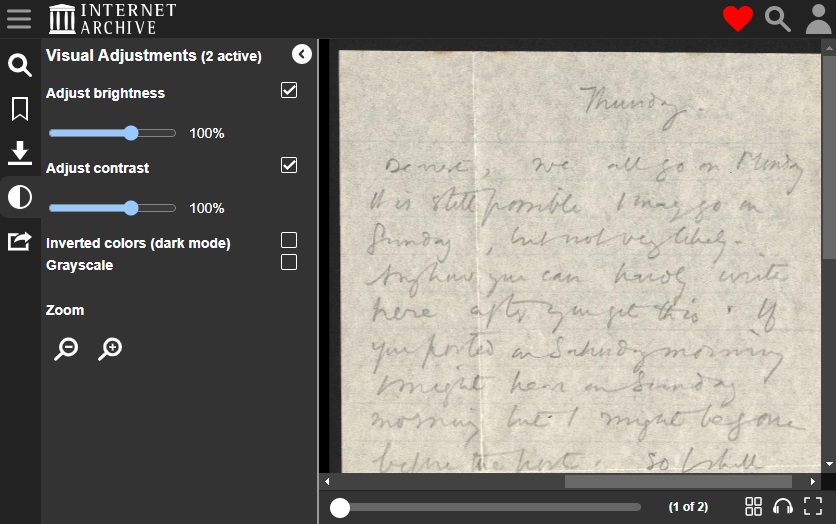 INTERNET
ARCHIVE
Visual Adjustments (2 active)
Adjust brightness
100%
Adjust contrast
100%
Inverted colors (dark mode)
Grayscale
Zoom
Thursday.
Dearest, we all go on Monday
It is still possible I may go on
Sunday, but not very likely.
Anyhow you can hardly write
here after you get this. If
you posted on Saturday morning
I might hear on Sunday
morning but I might be gone
before the post. So I shall
(1 of 2)